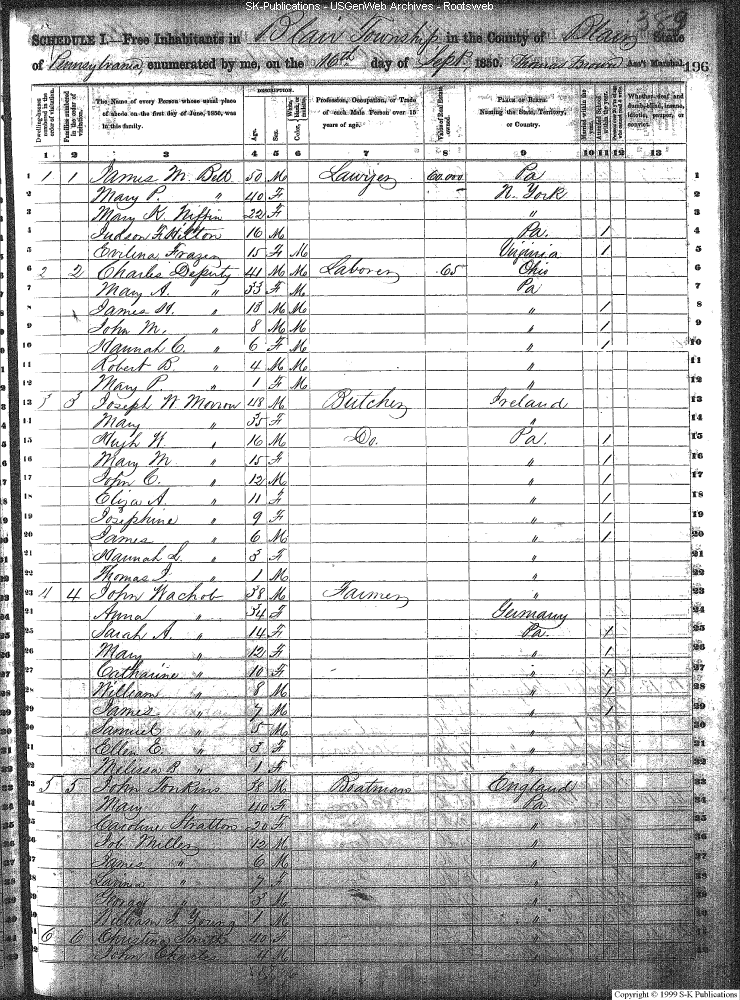 SK-Publications - USGenWeb Archives - Rootsweb
389
SCHEDULE I. Free Inhabitants in Blair Township in the County of Blair State
of Pennsylvania enumerated by me, on the 16th day of Sept. 1850. Thomas Brown Ass't Marshal. 196
Dwelling-houses numbered in the order of visitation. Families numbered in the order of visitation. The Name of every Person whose usual place of abode on the first day of June, 1850, was in this family. DESCRIPTION. Age. Sex. White, black, or mulatto. Color, Profession, Occupation, or Trade of each Male Person over 15 years of age. Value of Real Estate owned. PLACE OF BIRTH. Naming the State, Territory, or Country. Married within the year. Attended School within the year. Whether deaf and dumb, blind, insane, idiotic, pauper, or convict.
1 2 3 4 5 6 7 8 9 10 11 12 13
1 1 1 James M. Bell 50 M Lawyer 60.000 Pa 1
2 Mary P. " 40 F N. York 2
3 Mary K. 22 F " 3
4 Judson F. Hilton 16 M Pa. / 4
5 Evilina Frazer 15 F M Virginia / 5
6 2 2 Charles Deputy 41 M M Laborer 65 Ohio 6
7 Mary A. " 33 F M Pa 7
8 James H. " 13 M M " / 8
9 John M. " 8 M M " / 9
10 Hannah C. " 6 F M " / 10
11 Robert B. " 4 M M " 11
12 Mary P. " 1 F M " 12
13 3 3 Joseph W. Morrow 48 M Butcher Ireland 13
14 Mary " 35 F " 14
15 Hugh W. " 16 M Do. Pa. / 15
16 Mary M. " 15 F " / 16
17 John C. " 12 M " / 17
18 Eliza A. " 11 F " / 18
19 Josephine " 9 F " / 19
20 James " 6 M " / 20
21 Hannah L. " 3 F " 21
22 Thomas J. " 1 M " 22
23 4 4 John Wachob 38 M Farmer " 23
24 Anna " 34 F Germany 24
25 Sarah A. " 14 F Pa. / 25
26 Mary " 12 F " / 26
27 Catharine " 10 F " / 27
28 William " 8 M " / 28
29 James " 7 M " / 29
30 Samuel " 5 M " 30
31 Ellen C. " 3 F " 31
32 Melissa B. " 1 F " 32
33 5 5 John Jenkins 38 M Boatman England 33
34 Mary " 40 F Pa 34
35 Caroline Stratton 20 F " 35
36 Job Miller 12 M " 36
37 James " 6 M " 37
38 " 7 F " 38
39 " 3 M " 39
40 William J. Young 1 M " 40
41 6 6 Christina Smith 40 F " 41
42 John Charles 4 M " 42
Copyright © 1999 S-K Publications